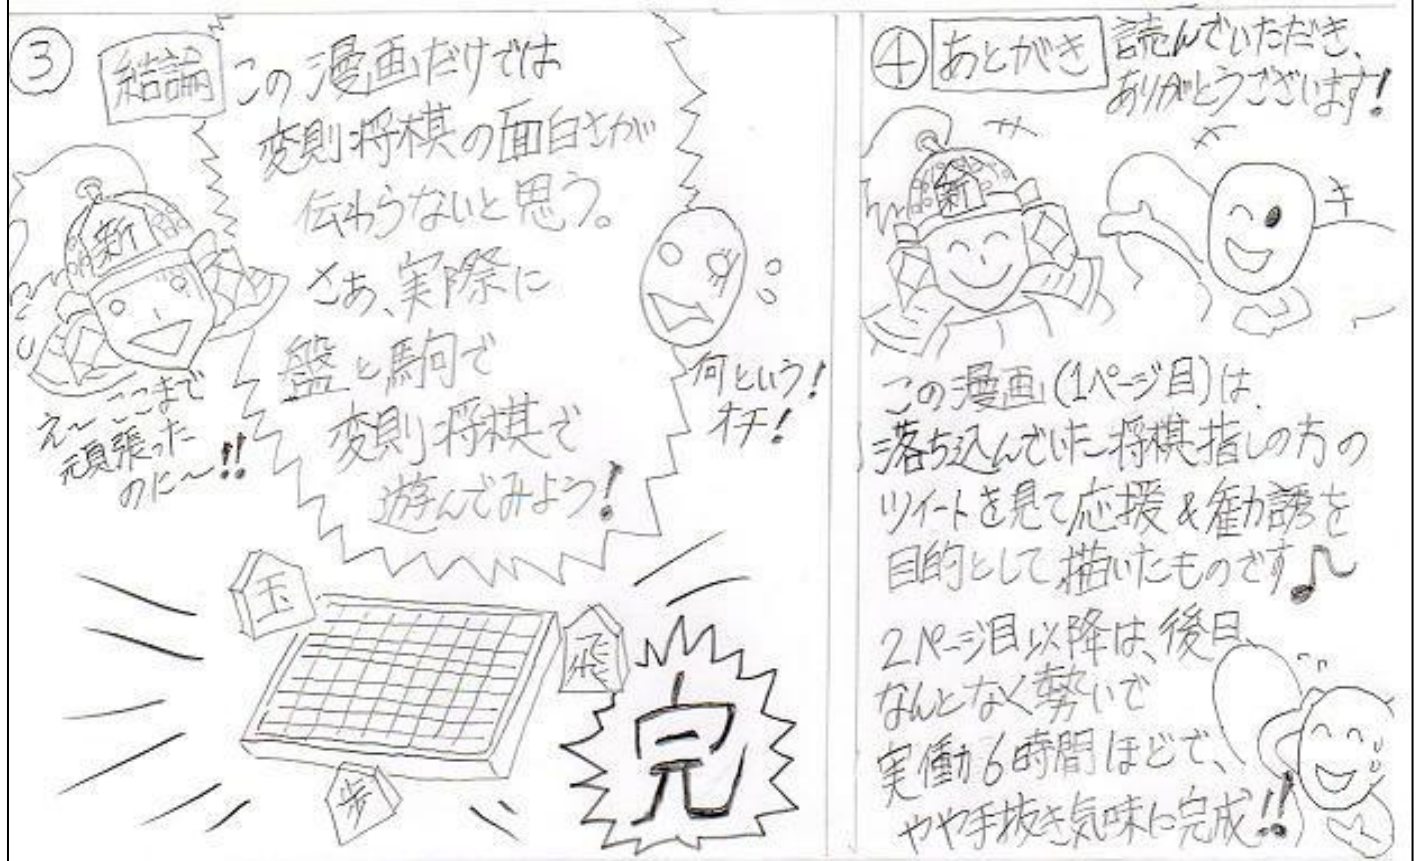 ③
結論
この漫画だけでは
変則将棋の面白さが
伝わらないと思う。
さあ、実際に
盤と駒で
変則将棋で
遊んでみよう!
新
え〜ここまで
頑張った
のに〜!!
何という!
オチ!
玉
飛
歩
完
④
あとがき
読んでいただき、
ありがとうございます!
新
キ
この漫画(1ページ目)は、
落ち込んでいた将棋指しの方の
ツイートを見て応援&勧誘を
目的として描いたものです♪
2ページ目以降は、後日、
なんとなく勢いで
実働6時間ほどで、
やや手抜き気味に完成!!